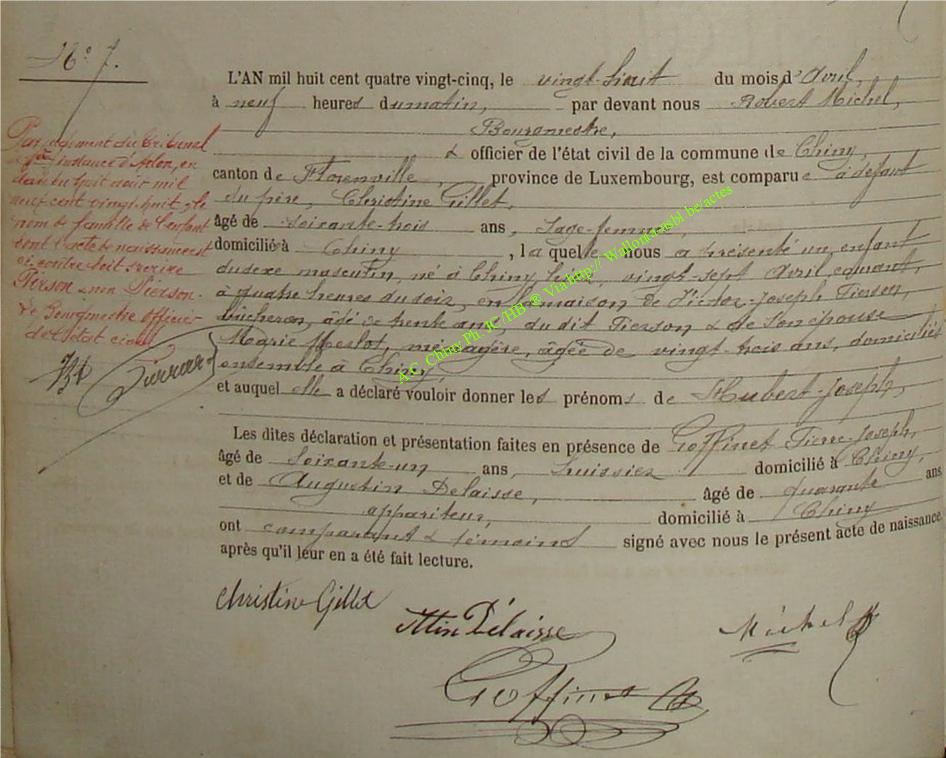 N° 7.
L'AN mil huit cent quatre vingt-cinq, le vingt-huit du mois d'Avril,
à neuf heures du matin, par devant nous Robert Michel,
Bourgmestre,
& officier de l'état civil de la commune de Chiny,
canton de Florenville, province de Luxembourg, est comparue à défaut
du père, Christine Gillet,
âgé de soixante-trois ans, Sage-femme,
domicilié à Chiny, laquelle nous a présenté un enfant
du sexe masculin, né à Chiny, le vingt-sept Avril courant,
à quatre heures du soir, en la maison de Victor-Joseph Pierson,
bucheron, âgé de trente ans, du dit Pierson & de son épouse
Marie Merlot, ménagère, âgée de vingt-trois ans, domiciliés
ensemble à Chiny,
et auquel elle a déclaré vouloir donner les prénoms de Hubert-Joseph,
Les dites déclaration et présentation faites en présence de Goffinet Pierre-Joseph,
âgé de soixante-un ans, huissier domicilié à Chiny,
et de Augustin Delaisse, âgé de quarante ans
appariteur, domicilié à Chiny
ont comparant & témoins signé avec nous le présent acte de naissance
après qu'il leur en a été fait lecture.
Par jugement du tribunal
de 1ère instance d'Arlon, en
date du huit août mil
neuf cent vingt-huit, le
nom de famille de l'enfant
dont l'acte de naissance est
ci-contre doit s'écrire
Pirson & non Pierson.
Le Bourgmestre officier
de l'état civil
Christine Gillet
Attin Délaisse
Michel R
Goffinet
A.C. Chiny Ph. JC/HB ® Via http:// Wallonicasbl.be/actes